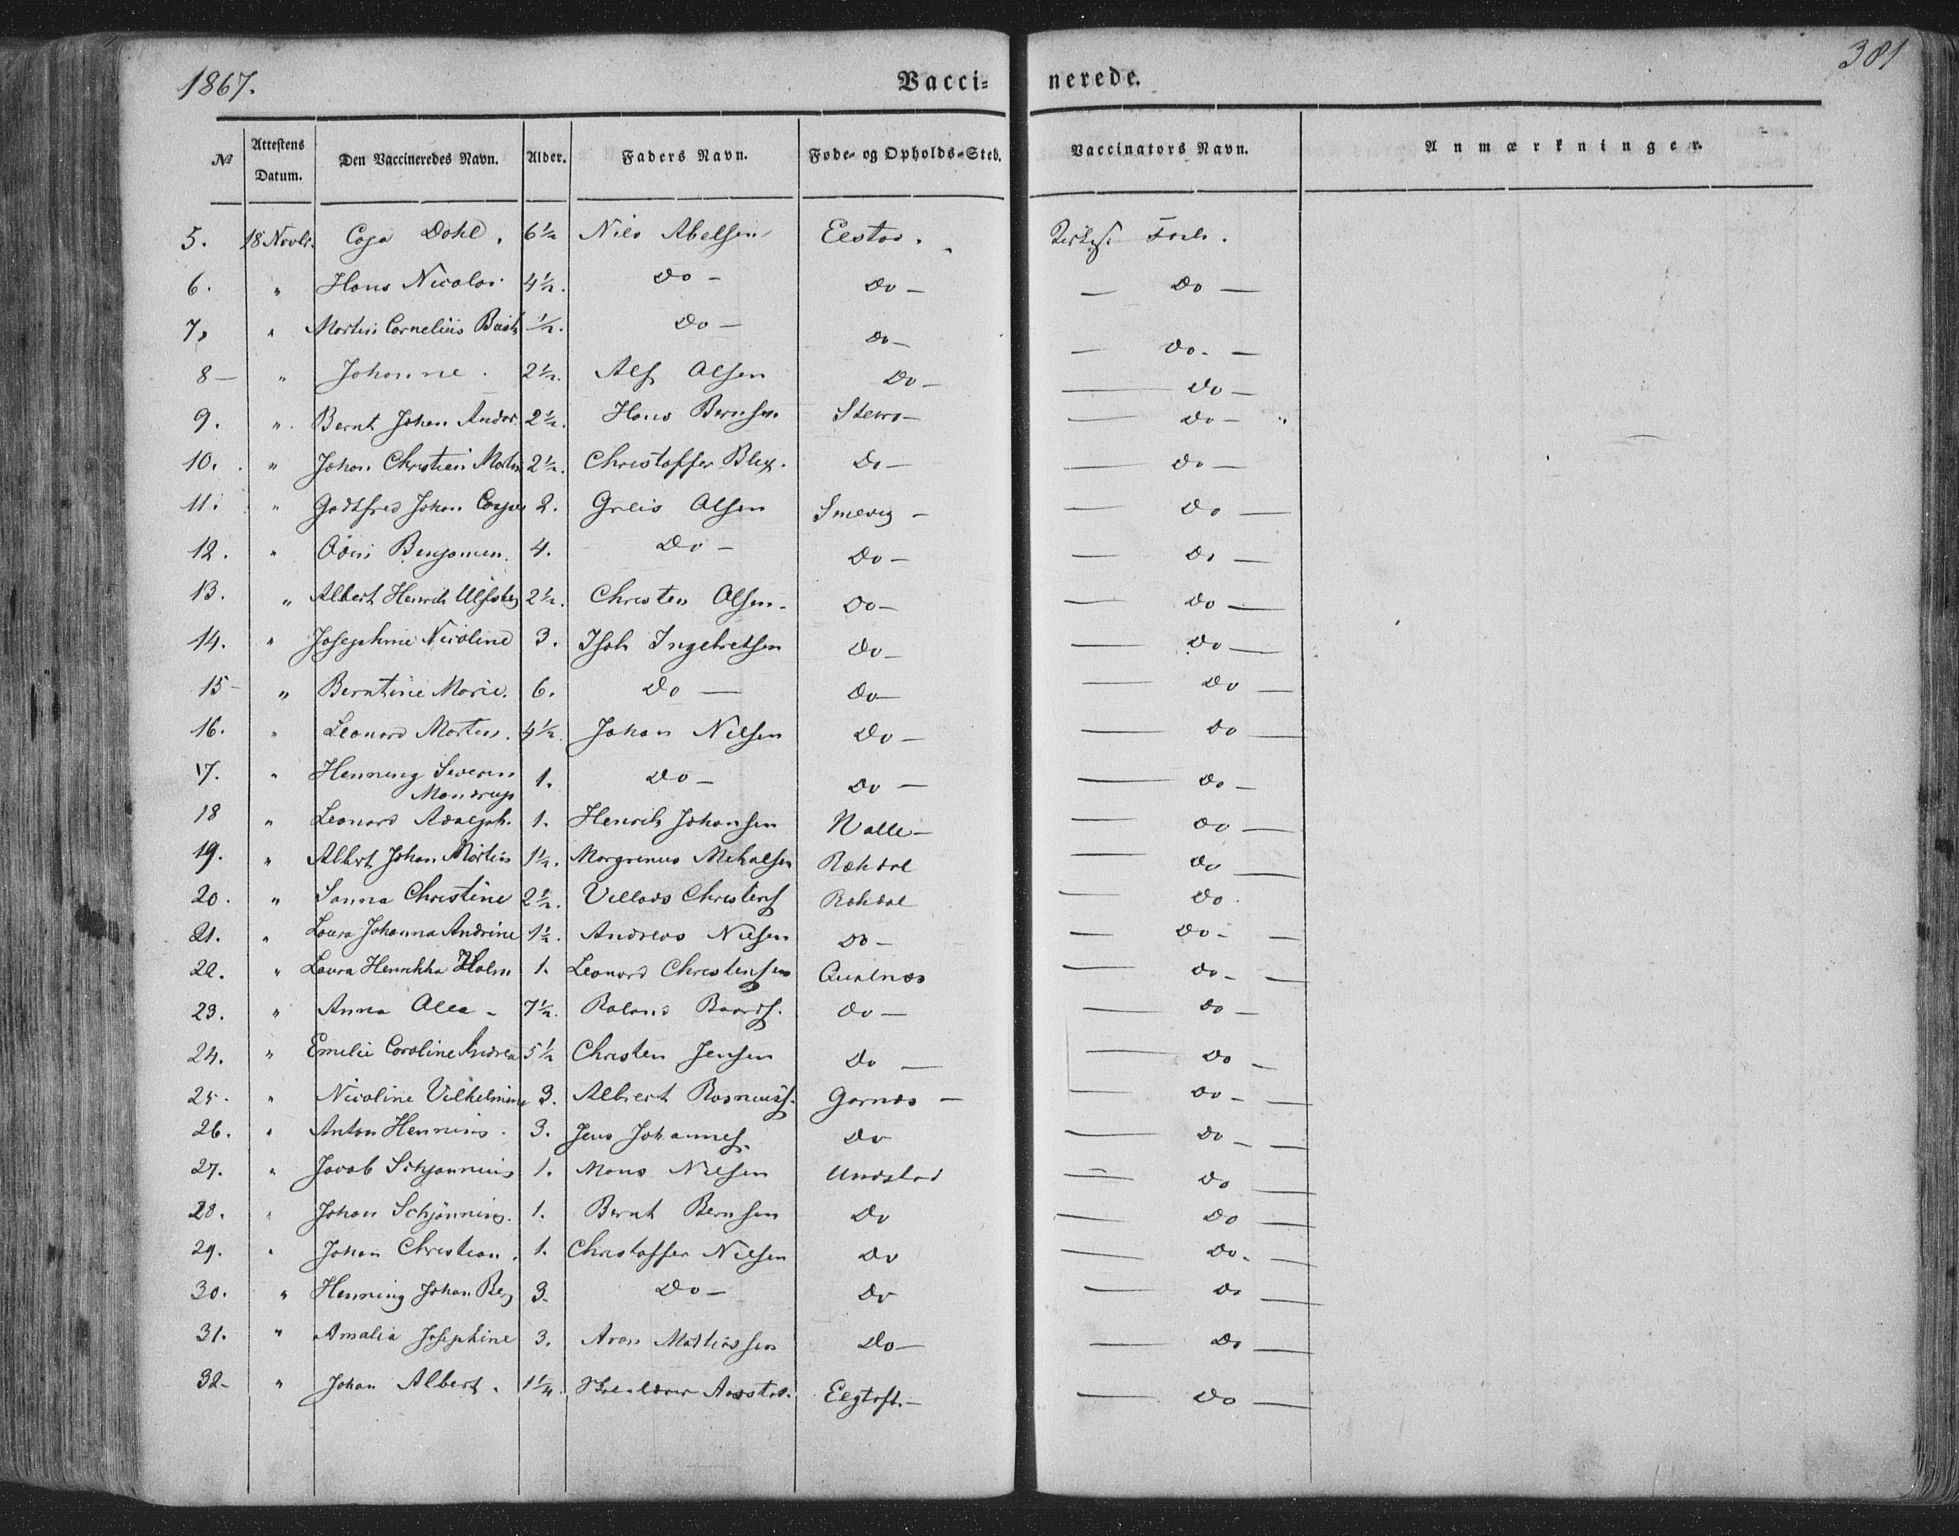 1867. Vacci- nerede. 381
№ Attestens Datum. Den Vaccineredes Navn. Alder. Faders Navn. Føde- og Opholds-Sted. Vaccinators Navn. Anmærkninger.
5. 18 Novbr. Dahl. 6½ Nils Abelsen Eestad.
6. " Hans Nicolai 4½. Do - Do - - Do -
7. " Morten Cornelius ½. Do - Do - - Do. -
8 - " Johanne. 2½. Alf Olsen Do - - Do -
9. " Bernt Johan Andor. 2½. Hans Bernsen Steiro - - Do - "
10. " Johan Christian Martin 2½. Christoffer Blix. Do - - Do -
11. " Godtfred Johan Casper 2. Greis Olsen Smevig - - Do -
12. " Odin Benjamin. 4. Do - Do - - Do -
13. " Albert Henrik 2½. Christen Olsen. Do - - Do -
14. " Josephine Nicoline 3. Isak Ingebretsen Do - - Do -
15 - " Berntine Marie. 6. Do - Do - - Do -
16. " Leonard Morten. 4½. Johan Nilsen Do - - Do -
17. " Henning Severin Mandrup 1. Do - Do - - Do -
18 " Leonard Adolph. 1. Henrik Johansen Nalle - - Do -
19. " Albert Johan Mortin 1½. Margrinus Mikalsen Røkdal - Do -
20. " Sanna Christine 2½. Villads Christens Røkdal - Do.
21. " Laura Johanna Andrine 1½. Andreas Nilsen Do - - Do - -
22. " Laura Henrikka Holm 1. Leonard Christensen Qualnæs - Do - -
23. " Anna Olea - 7½. Roland Baards. Do - - Do -
24. " Emelie Caroline Andrea 5½ Christen Jensen Do - - Do -
25. " Nicoline Vilhelmine 3. Albrect Rasmuss. Garnæs - - Do - -
26. " Anton Henning. 3. Jens Johannes. Do - Do - -
27. " Jacob Schjønning 1. Mons Nilsen Undstad - Do -
28. " Johan Schjønning. 1. Bernt Bernsen Do - Do -
29. " Johan Christian. 1. Christoffer Nilsen Do - Do. -
30. " Henning Johan Berg 3. Do - Do - Do -
31. " Amalia Josephine 3. Aron Mathiassen Do - - Do -
32 - " Johan Albert. 1¼ Eegtoft. - - Do -